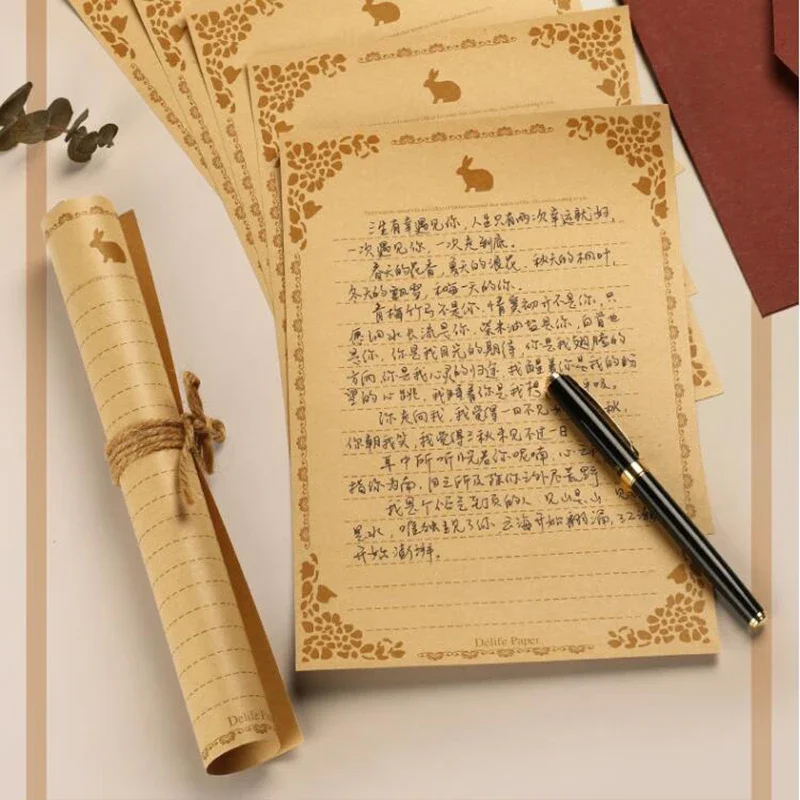 三生有幸遇见你,人生只有两次幸运就好,
一次遇见你,一次走到底。
春天的花香,夏天的浪花,秋天的枫叶,
冬天的飘雪,和每一天的你。
青梅竹马不是你,情窦初开不是你,只
愿细水长流是你,柴米油盐是你,白首也
是你,你是我目光的期待,你是我翅膀的
方向,你是我心灵的归途,我醒着你是我的盼
望的心跳,我睡着你是我 吸。
你走向我,我觉得一日不见 秋,
你朝我笑,我觉得三秋未见不过一日
耳中所听 你呢喃,心之
指你为南,目之所及除你之外尽荒野
我是个俗气至顶的人,见山是山,见
是水,唯独见了你,云海开始翻涌,江潮
开始澎湃。
Delife Paper
Delife Pa